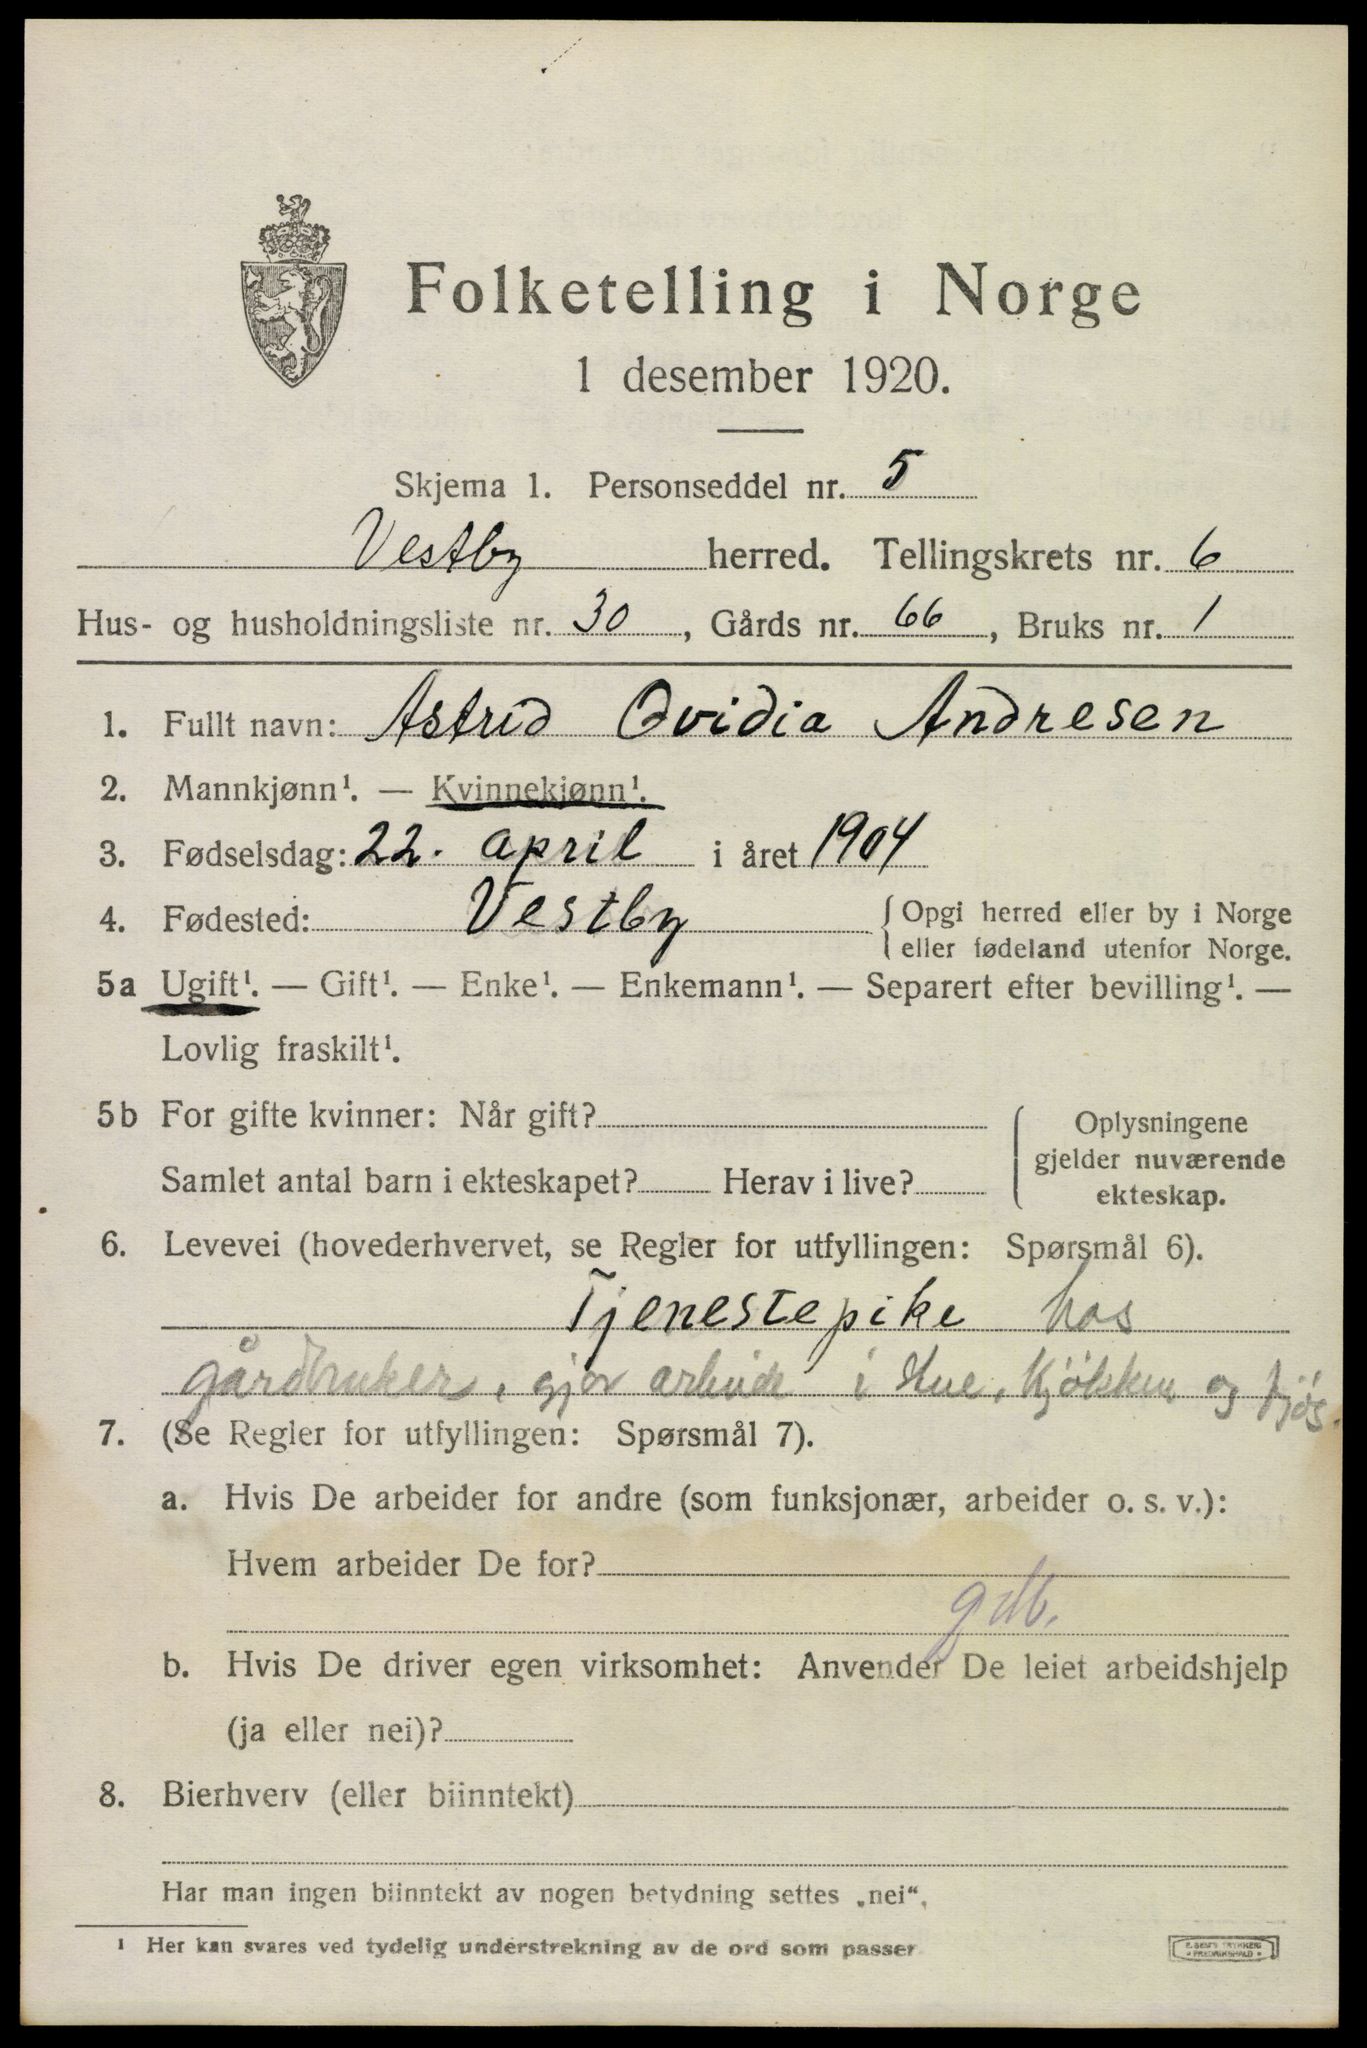 Folketelling i Norge
1 desember 1920.
Skjema 1. Personseddel nr. 5
Vestby herred. Tellingskrets nr. 6
Hus- og husholdningsliste nr. 30, Gårds nr. 66, Bruks nr. 1
1. Fullt navn: Astrid Ovidia Andresen
2. Mannkjønn¹. — Kvinnekjønn¹.
3. Fødselsdag: 22. april i året 1904
4. Fødested: Vestby { Opgi herred eller by i Norge
eller fødeland utenfor Norge.
5a Ugift¹. — Gift¹. — Enke¹. — Enkemann¹. — Separert efter bevilling¹. —
Lovlig fraskilt¹.
5b For gifte kvinner: Når gift?
Samlet antal barn i ekteskapet? Herav i live?
Oplysningene
gjelder nuværende
ekteskap.
6. Levevei (hovederhvervet, se Regler for utfyllingen: Spørsmål 6).
Tjenestepike hos
gårdbruker, gjør arbeide i hue, kjøkken og fjøs.
7. (Se Regler for utfyllingen: Spørsmål 7).
a. Hvis De arbeider for andre (som funksjonær, arbeider o. s. v.):
Hvem arbeider De for?
gdb.
b. Hvis De driver egen virksomhet: Anvender De leiet arbeidshjelp
(ja eller nei)?
8. Bierhverv (eller biinntekt)
Har man ingen biinntekt av nogen betydning settes „nei“.
¹ Her kan svares ved tydelig understrekning av de ord som passer